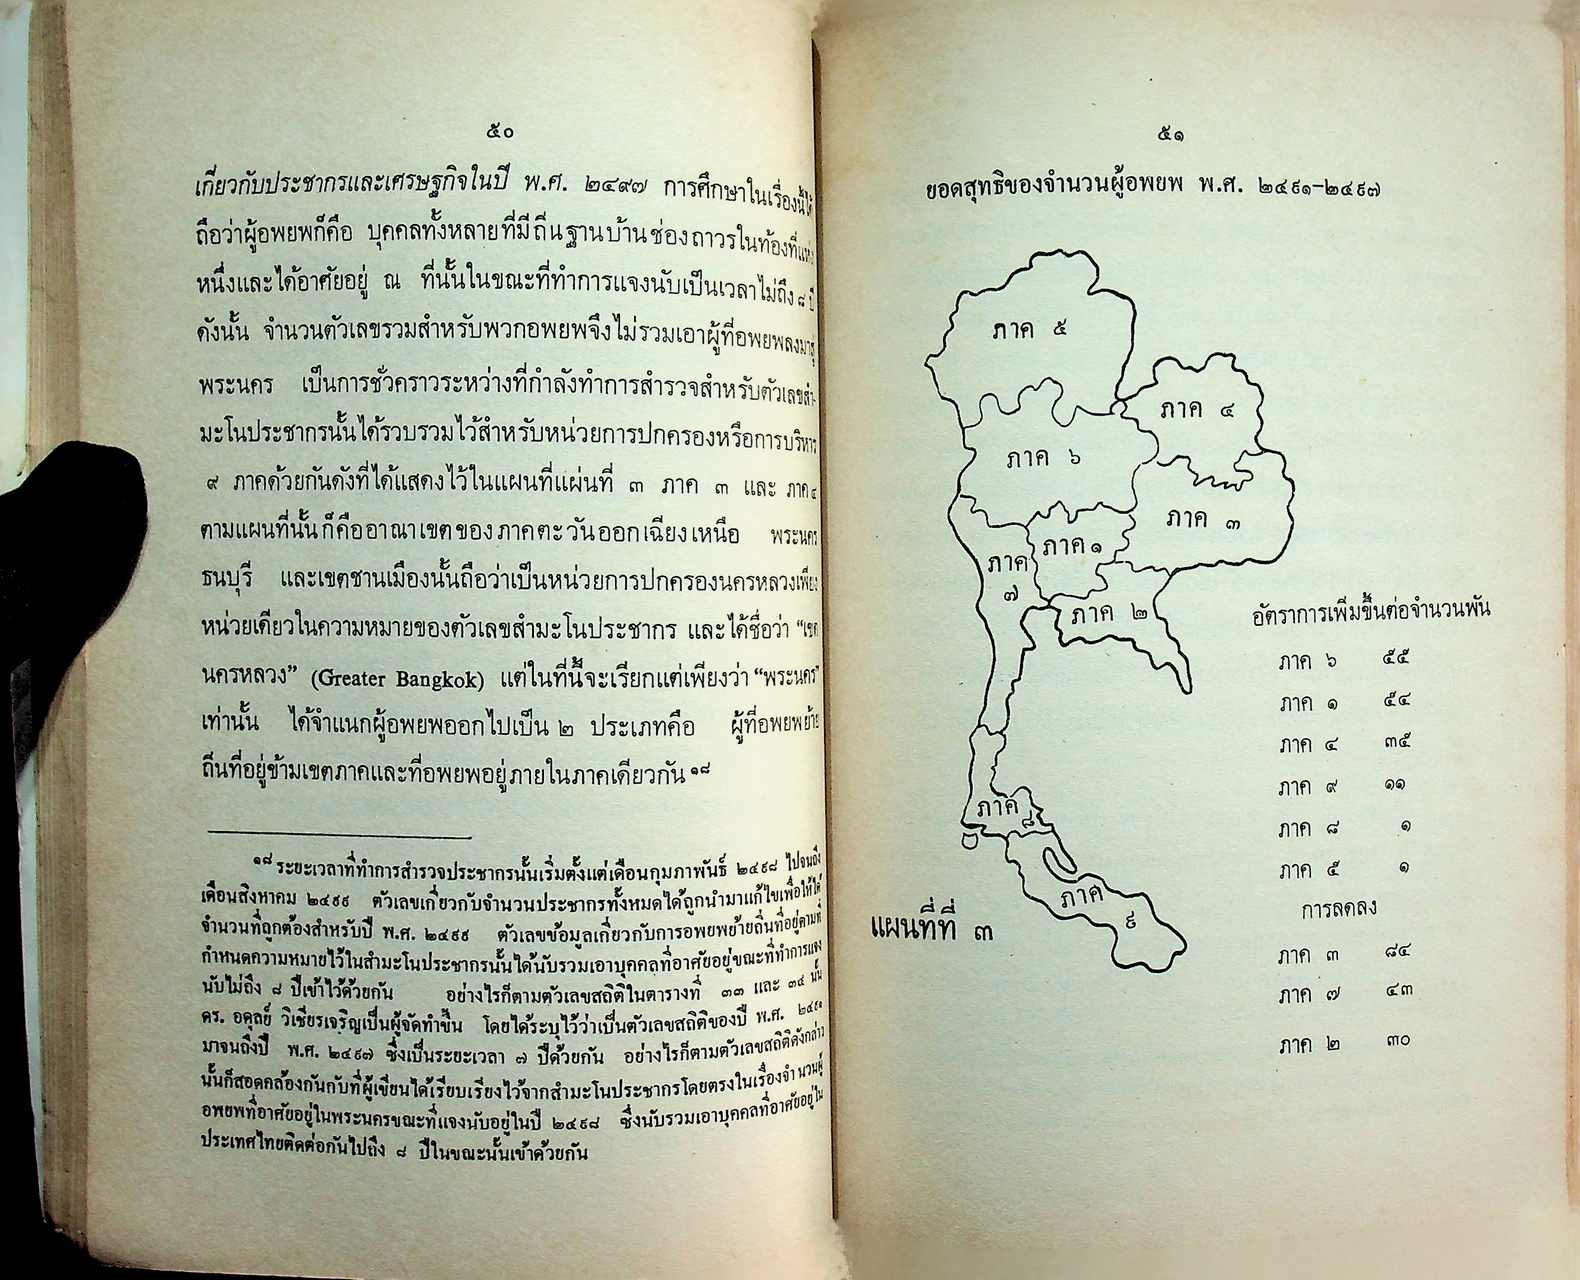 ๕๐
เกี่ยวกับประชากรและเศรษฐกิจในปี พ.ศ. ๒๔๙๗ การศึกษาในเรื่องนี้ได้
ถือว่าผู้อพยพก็คือ บุคคลทั้งหลายที่มีถิ่นฐานบ้านช่องถาวรในท้องที่แห่ง
หนึ่งและได้อาศัยอยู่ ณ ที่นั้นในขณะที่ทำการแจงนับเป็นเวลาไม่ถึง ๘ ปี
ดังนั้น จำนวนตัวเลขรวมสำหรับพวกอพยพจึงไม่รวมเอาผู้ที่อพยพลงมาสู่
พระนคร เป็นการชั่วคราวระหว่างที่กำลังทำการสำรวจสำหรับตัวเลขสำ-
มะโนประชากรนั้นได้รวบรวมไว้สำหรับหน่วยการปกครองหรือการบริหาร
๙ ภาคด้วยกันดังที่ได้แสดงไว้ในแผนที่แผ่นที่ ๓ ภาค ๓ และ ภาค ๔
ตามแผนที่นั้นก็คืออาณาเขตของภาคตะวันออกเฉียงเหนือ พระนคร
ธนบุรี และเขตชานเมืองนั้นถือว่าเป็นหน่วยการปกครองนครหลวงเพียง
หน่วยเดียวในความหมายของตัวเลขสำมะโนประชากร และได้ชื่อว่า “เขต
นครหลวง” (Greater Bangkok) แต่ในที่นี้จะเรียกแต่เพียงว่า “พระนคร”
เท่านั้น ได้จำแนกผู้อพยพออกไปเป็น ๒ ประเภทคือ ผู้ที่อพยพย้าย
ถิ่นที่อยู่ข้ามเขตภาคและที่อพยพอยู่ภายในภาคเดียวกัน ๑๘
๑๘ ระยะเวลาที่ทำการสำรวจประชากรนั้นเริ่มตั้งแต่เดือนกุมภาพันธ์ ๒๔๙๘ ไปจนถึง
เดือนสิงหาคม ๒๔๙๙ ตัวเลขเกี่ยวกับจำนวนประชากรทั้งหมดได้ถูกนำมาแก้ไขเพื่อให้ได้
จำนวนที่ถูกต้องสำหรับปี พ.ศ. ๒๔๙๙ ตัวเลขข้อมูลเกี่ยวกับการอพยพย้ายถิ่นที่อยู่ตามที่
กำหนดความหมายไว้ในสำมะโนประชากรนั้นได้นับรวมเอาบุคคลที่อาศัยอยู่ขณะที่ทำการแจง
นับไม่ถึง ๘ ปีเข้าไว้ด้วยกัน อย่างไรก็ตามตัวเลขสถิติในตารางที่ ๓๓ และ ๓๔ นั้น
ดร. อดุลย์ วิเชียรเจริญเป็นผู้จัดทำขึ้น โดยได้ระบุไว้ว่าเป็นตัวเลขสถิติของปี พ.ศ. ๒๔๙๑
มาจนถึงปี พ.ศ. ๒๔๙๗ ซึ่งเป็นระยะเวลา ๗ ปีด้วยกัน อย่างไรก็ตามตัวเลขสถิติดังกล่าว
นั้นก็สอดคล้องกันกับที่ผู้เขียนได้เรียบเรียงไว้จากสำมะโนประชากรโดยตรงในเรื่องจำนวนผู้
อพยพที่อาศัยอยู่ในพระนครขณะที่แจงนับอยู่ในปี ๒๔๙๘ ซึ่งนับรวมเอาบุคคลที่อาศัยอยู่ใน
ประเทศไทยติดต่อกันไปถึง ๘ ปีในขณะนั้นเข้าด้วยกัน
๕๑
ยอดสุทธิของจำนวนผู้อพยพ พ.ศ. ๒๔๙๑-๒๔๙๗
ภาค ๕
ภาค ๔
ภาค ๖
ภาค ๓
ภาค ๑
ภาค
๗
ภาค ๒
ภาค
๘
ภาค
๙
แผนที่ที่ ๓
อัตราการเพิ่มขึ้นต่อจำนวนพัน
ภาค ๖ ๕๕
ภาค ๑ ๕๔
ภาค ๔ ๓๕
ภาค ๙ ๑๑
ภาค ๘ ๑
ภาค ๕ ๑
การลดลง
ภาค ๓ ๘๔
ภาค ๗ ๔๓
ภาค ๒ ๓๐